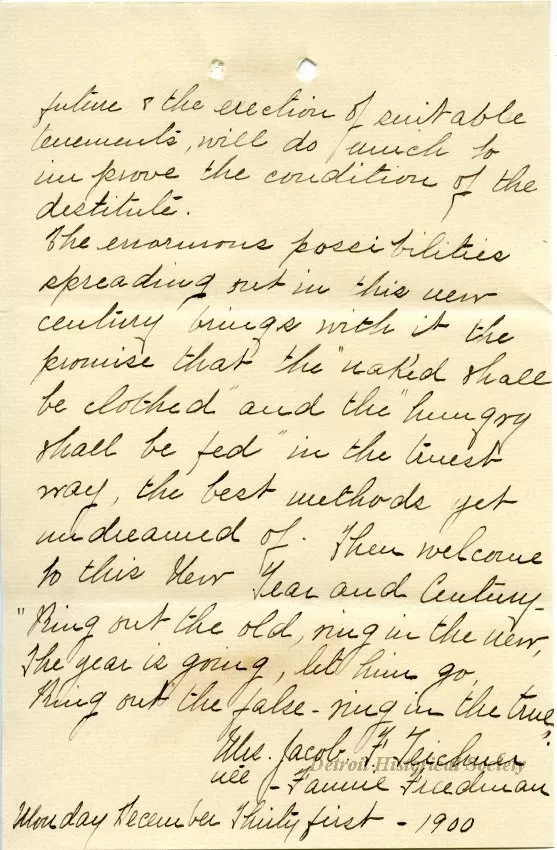 future & the erection of suitable
tenements, will do much to
improve the condition of the
destitute.
The enormous possibilities
spreading out in this new
century brings with it the
promise that the "naked shall
be clothed" and the "hungry
shall be fed" in the truest
way, the best methods yet
undreamed of. Then welcome
to this New Year and Century-
"Ring out the old, ring in the new,
The year is going, let him go,
Ring out the false - ring in the true."
Mrs. Jacob F. Teichner
neé - Fannie Freedman
Detroit Historical Society
Monday December Thirty first - 1900